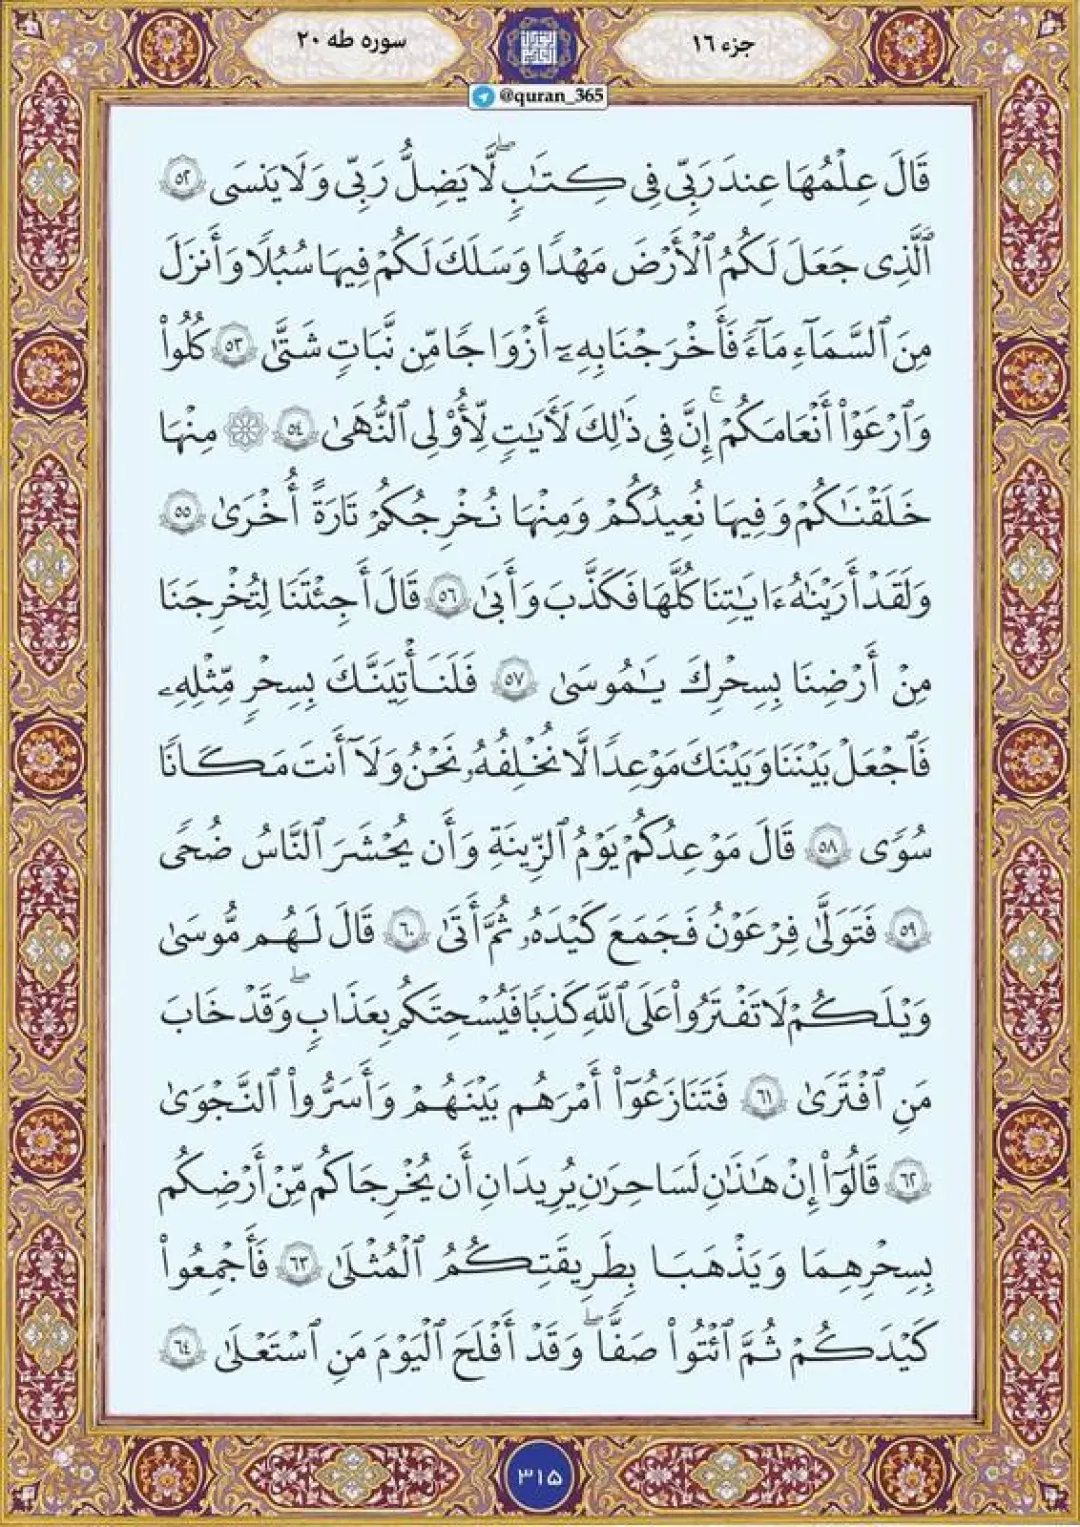 جزء ۱۶
سوره طه ۲۰
@quran_365
قَالَ عِلْمُهَا عِندَ رَبِّى فِى كِتَٰبٍۖ لَّا يَضِلُّ رَبِّى وَلَا يَنسَى ٥٢
ٱلَّذِى جَعَلَ لَكُمُ ٱلْأَرْضَ مَهْدًا وَسَلَكَ لَكُمْ فِيهَا سُبُلًا وَأَنزَلَ
مِنَ ٱلسَّمَآءِ مَآءً فَأَخْرَجْنَا بِهِۦٓ أَزْوَاجًا مِّن نَّبَاتٍ شَتَّىٰ ٥٣ كُلُوا۟
وَٱرْعَوْا۟ أَنْعَامَكُمْۚ إِنَّ فِى ذَٰلِكَ لَأَيَٰتٍ لِّأُو۟لِى ٱلنُّهَىٰ ٥٤ ۞ مِنْهَا
خَلَقْنَٰكُمْ وَفِيهَا نُعِيدُكُمْ وَمِنْهَا نُخْرِجُكُمْ تَارَةً أُخْرَىٰ ٥٥
وَلَقَدْ أَرَيْنَٰهُ ءَايَٰتِنَا كُلَّهَا فَكَذَّبَ وَأَبَىٰ ٥٦ قَالَ أَجِئْتَنَا لِتُخْرِجَنَا
مِنْ أَرْضِنَا بِسِحْرِكَ يَٰمُوسَىٰ ٥٧ فَلَنَأْتِيَنَّكَ بِسِحْرٍ مِّثْلِهِۦ
فَٱجْعَلْ بَيْنَنَا وَبَيْنَكَ مَوْعِدًا لَّا نُخْلِفُهُۥ نَحْنُ وَلَآ أَنتَ مَكَانًا
سُوًى ٥٨ قَالَ مَوْعِدُكُمْ يَوْمُ ٱلزِّينَةِ وَأَن يُحْشَرَ ٱلنَّاسُ ضُحًى
٥٩ فَتَوَلَّىٰ فِرْعَوْنُ فَجَمَعَ كَيْدَهُۥ ثُمَّ أَتَىٰ ٦٠ قَالَ لَهُم مُّوسَىٰ
وَيْلَكُمْ لَا تَفْتَرُوا۟ عَلَى ٱللَّهِ كَذِبًا فَيُسْحِتَكُم بِعَذَابٍۖ وَقَدْ خَابَ
مَنِ ٱفْتَرَىٰ ٦١ فَتَنَٰزَعُوٓا۟ أَمْرَهُم بَيْنَهُمْ وَأَسَرُّوا۟ ٱلنَّجْوَىٰ
٦٢ قَالُوٓا۟ إِنْ هَٰذَٰنِ لَسَٰحِرَٰنِ يُرِيدَانِ أَن يُخْرِجَاكُم مِّنْ أَرْضِكُم
بِسِحْرِهِمَا وَيَذْهَبَا بِطَرِيقَتِكُمُ ٱلْمُثْلَىٰ ٦٣ فَأَجْمِعُوا۟
كَيْدَكُمْ ثُمَّ ٱئْتُوا۟ صَفًّاۖ وَقَدْ أَفْلَحَ ٱلْيَوْمَ مَنِ ٱسْتَعْلَىٰ ٦٤
۳۱۵